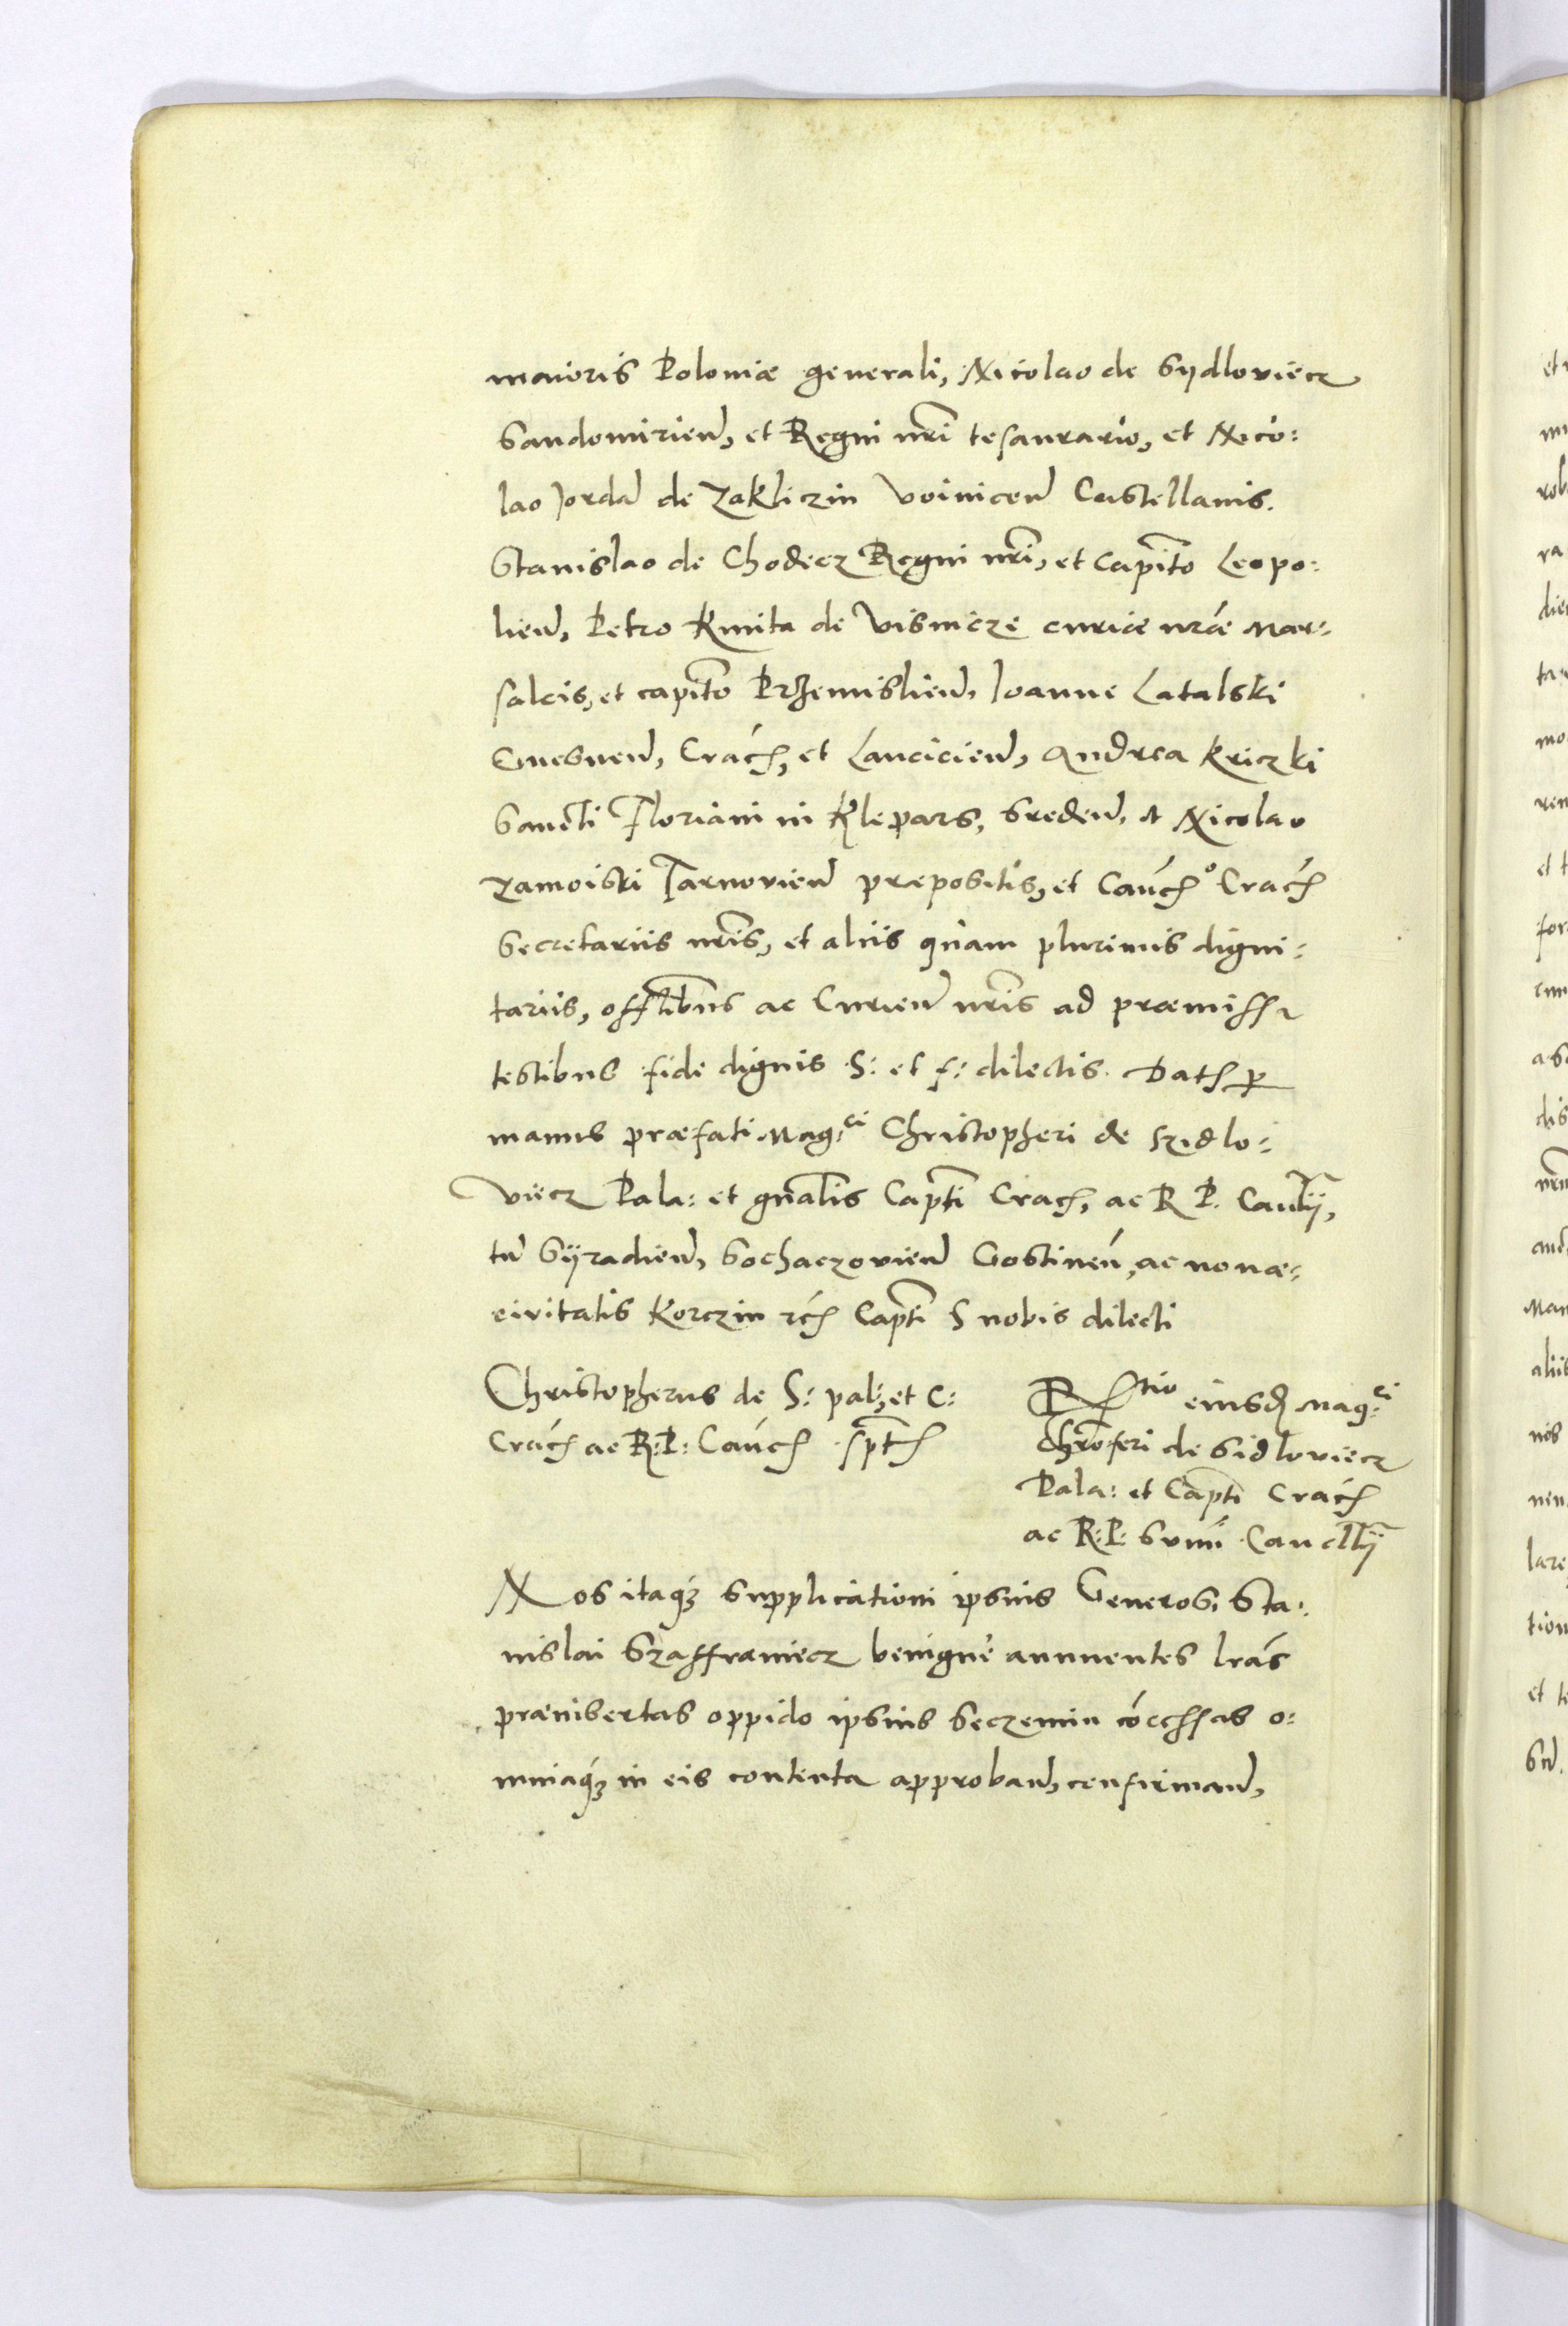 maioris Poloniæ generali, Nicolao de Sydloviecz
Sandomirieñ, et Regni nrĩ tesaurario, et Nico:
lao Jordã de Zakliczin Voiniceñ Castellanis.
Stanislao de Chodecz Regni nrĩ, et capito Leopo:
lieñ, Petro Kmita de Visnicze curiæ nræ Mar:
salcis, et capito Przemislieñ, Ioanne Latalski
Gnesneñ, Crach, et Lancicieñ, Andrea Kriczki
Sancti Floriani in Klepars, Sredeñ, et Nicolao
Zamoiski Tarnovieñ præpositis, et Canco Crach
Secretariis nrĩs, et aliis quam plurimis digni:
tariis, offlibus ac Curieñ nrĩs ad præmissa
testibus fide dignis S: et f: dilectis. Dat p
manus præfati Mag:ci Christopheri de Szidlo:
viecz Pala: et gnalis Capti Crac, ac R P. Canlrij,
tñ Syradieñ, Sochaczovieñ Gostineñ, ac novæ
civitatis Korczin etc Capti S nobis dilecti
Christopherus de S: pal: et C:
Crac ac R: P: Canc spt
Rtio eiusd Mag:ci
Chroferi de Sidloviecz
Pala: et Capti Crac
ac R: P: Sumi Cancllrij
Nos itaq3 supplicationi ipsius Generosi Sta:
nislai Szaffraniecz benigne annuentes lras
prænisertas oppido ipsius Seczemin cocessas o:
mniaq3 in eis contenta approband, confirmand,